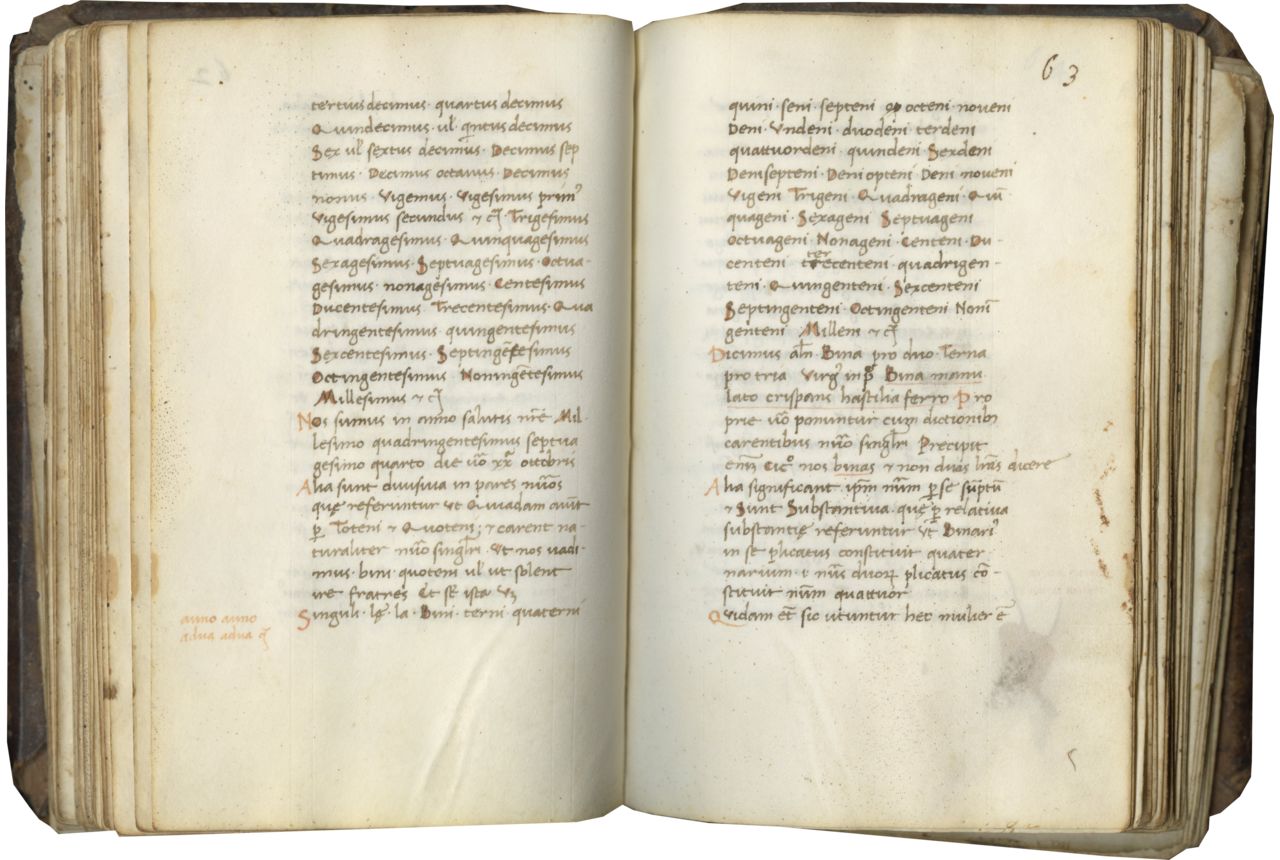 tertius decimus · quartus decimus
Quindecimus · ul̄ qntus decimus
Sex ul̄ sextus decimus · Decimus sep
timus · Decimus octavus · Decimus
nonus · Vigemus · Vigesimus prim9
Vigesimus secundus ⁊ c̄ Trigesimus
Quadragesimus · Quinquagesimus
Sexagesimus · Septuagesimus · Octua-
gesimus · nonagesimus · Centesimus
Ducentesimus Trecentesimus · Qua
dringentesimus quingentesimus
Sexcentesimus · Septingētesimus
Octingentesimus Noningētesimus
Millesimus ⁊ c̄
Nos sumus in anno salutis nr̄e Mil-
lesimo quadringentesimus septua
gesimo quarto die uō xxᵃ ottobris
Alia sunt divisiva in pares nūos
quę referuntur ut Quidam
ꝑ Toteni ⁊ Quoteni ⁊ carent na-
turaliter nūo singl̄ri · Ut nos uadi-
mus · bini · quoteni ul̄ ut solent
ire fratres Et st̄ ista
Singuli · lę · la · Bini · terni · quaterni
anno anno
adua adua
63
quini · seni · septeni octeni · noveni
Deni · Undeni · duodeni terdeni
quattuordeni · quindeni Sexdeni
Denisepteni · Deniopteni Deni noveni
Vigeni Trigeni · Quadrageni · Quī
quageni · Sexageni Septuageni
Octuageni · Nonageni Centeni · Du-
centeni tercenteni · quadrigen-
teni · Quingenteni · Sexcenteni
Septingenteni · Octingenteni Nonī
genteni Milleni ⁊ c̄
Dicimus al̄n Bina pro duo · Terna
pro tria Virg9 in pᵃ Bina manu
lato crispans hastilia ferro Pro
prie uō ponuntur cum dictionib
carentibus nūo singl̄ri Precipit
enī Cic° nos binas ⁊ non duas lr̄as dicere
Alia significant ip̄m nūm ꝑ se sūptū
⁊ Sunt Substantiva · quę ꝑ relativa
substantię referuntur ut Binari9
in se plicatus constituit quater
narium · i nūs duoꝝ plicatus cō-
stituit nūm quattuor
Quidam et̄ sic utuntur hec mulier ē